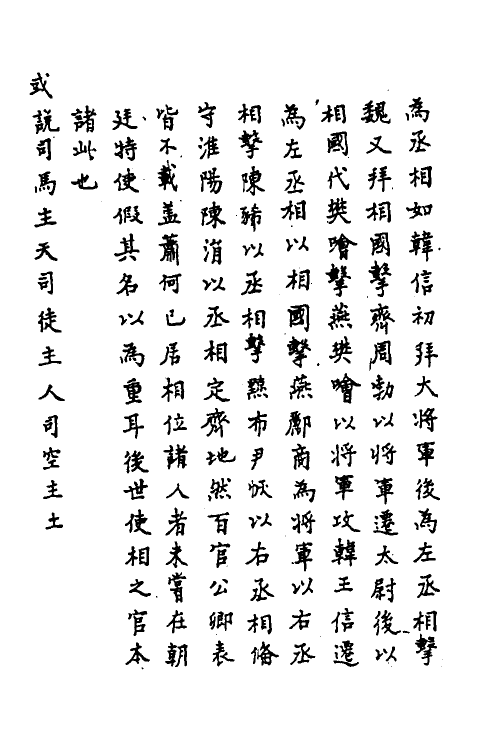 為丞相如韓信初拜大將軍後為左丞相擊
魏又拜相國擊齊周勃以將軍遷太尉後以
相國代樊噲擊燕樊噲以將軍攻韓王信遷
為左丞相以相國擊燕酈商為將軍以右丞
相擊陳豨以丞相擊黥布尹恢以右丞相俻
守淮陽陳涓以丞相定齊地然百官公卿表
皆不載盖蕭何已居相位諸人者未嘗在朝
廷特使假其名以為重耳後世使相之官本
諸此也
或說司馬主天司徒主人司空主土